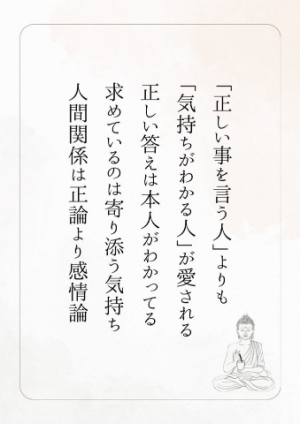 「正しい事を言う人」よりも
「気持ちがわかる人」が愛される
正しい答えは本人がわかってる
求めているのは寄り添う気持ち
人間関係は正論より感情論